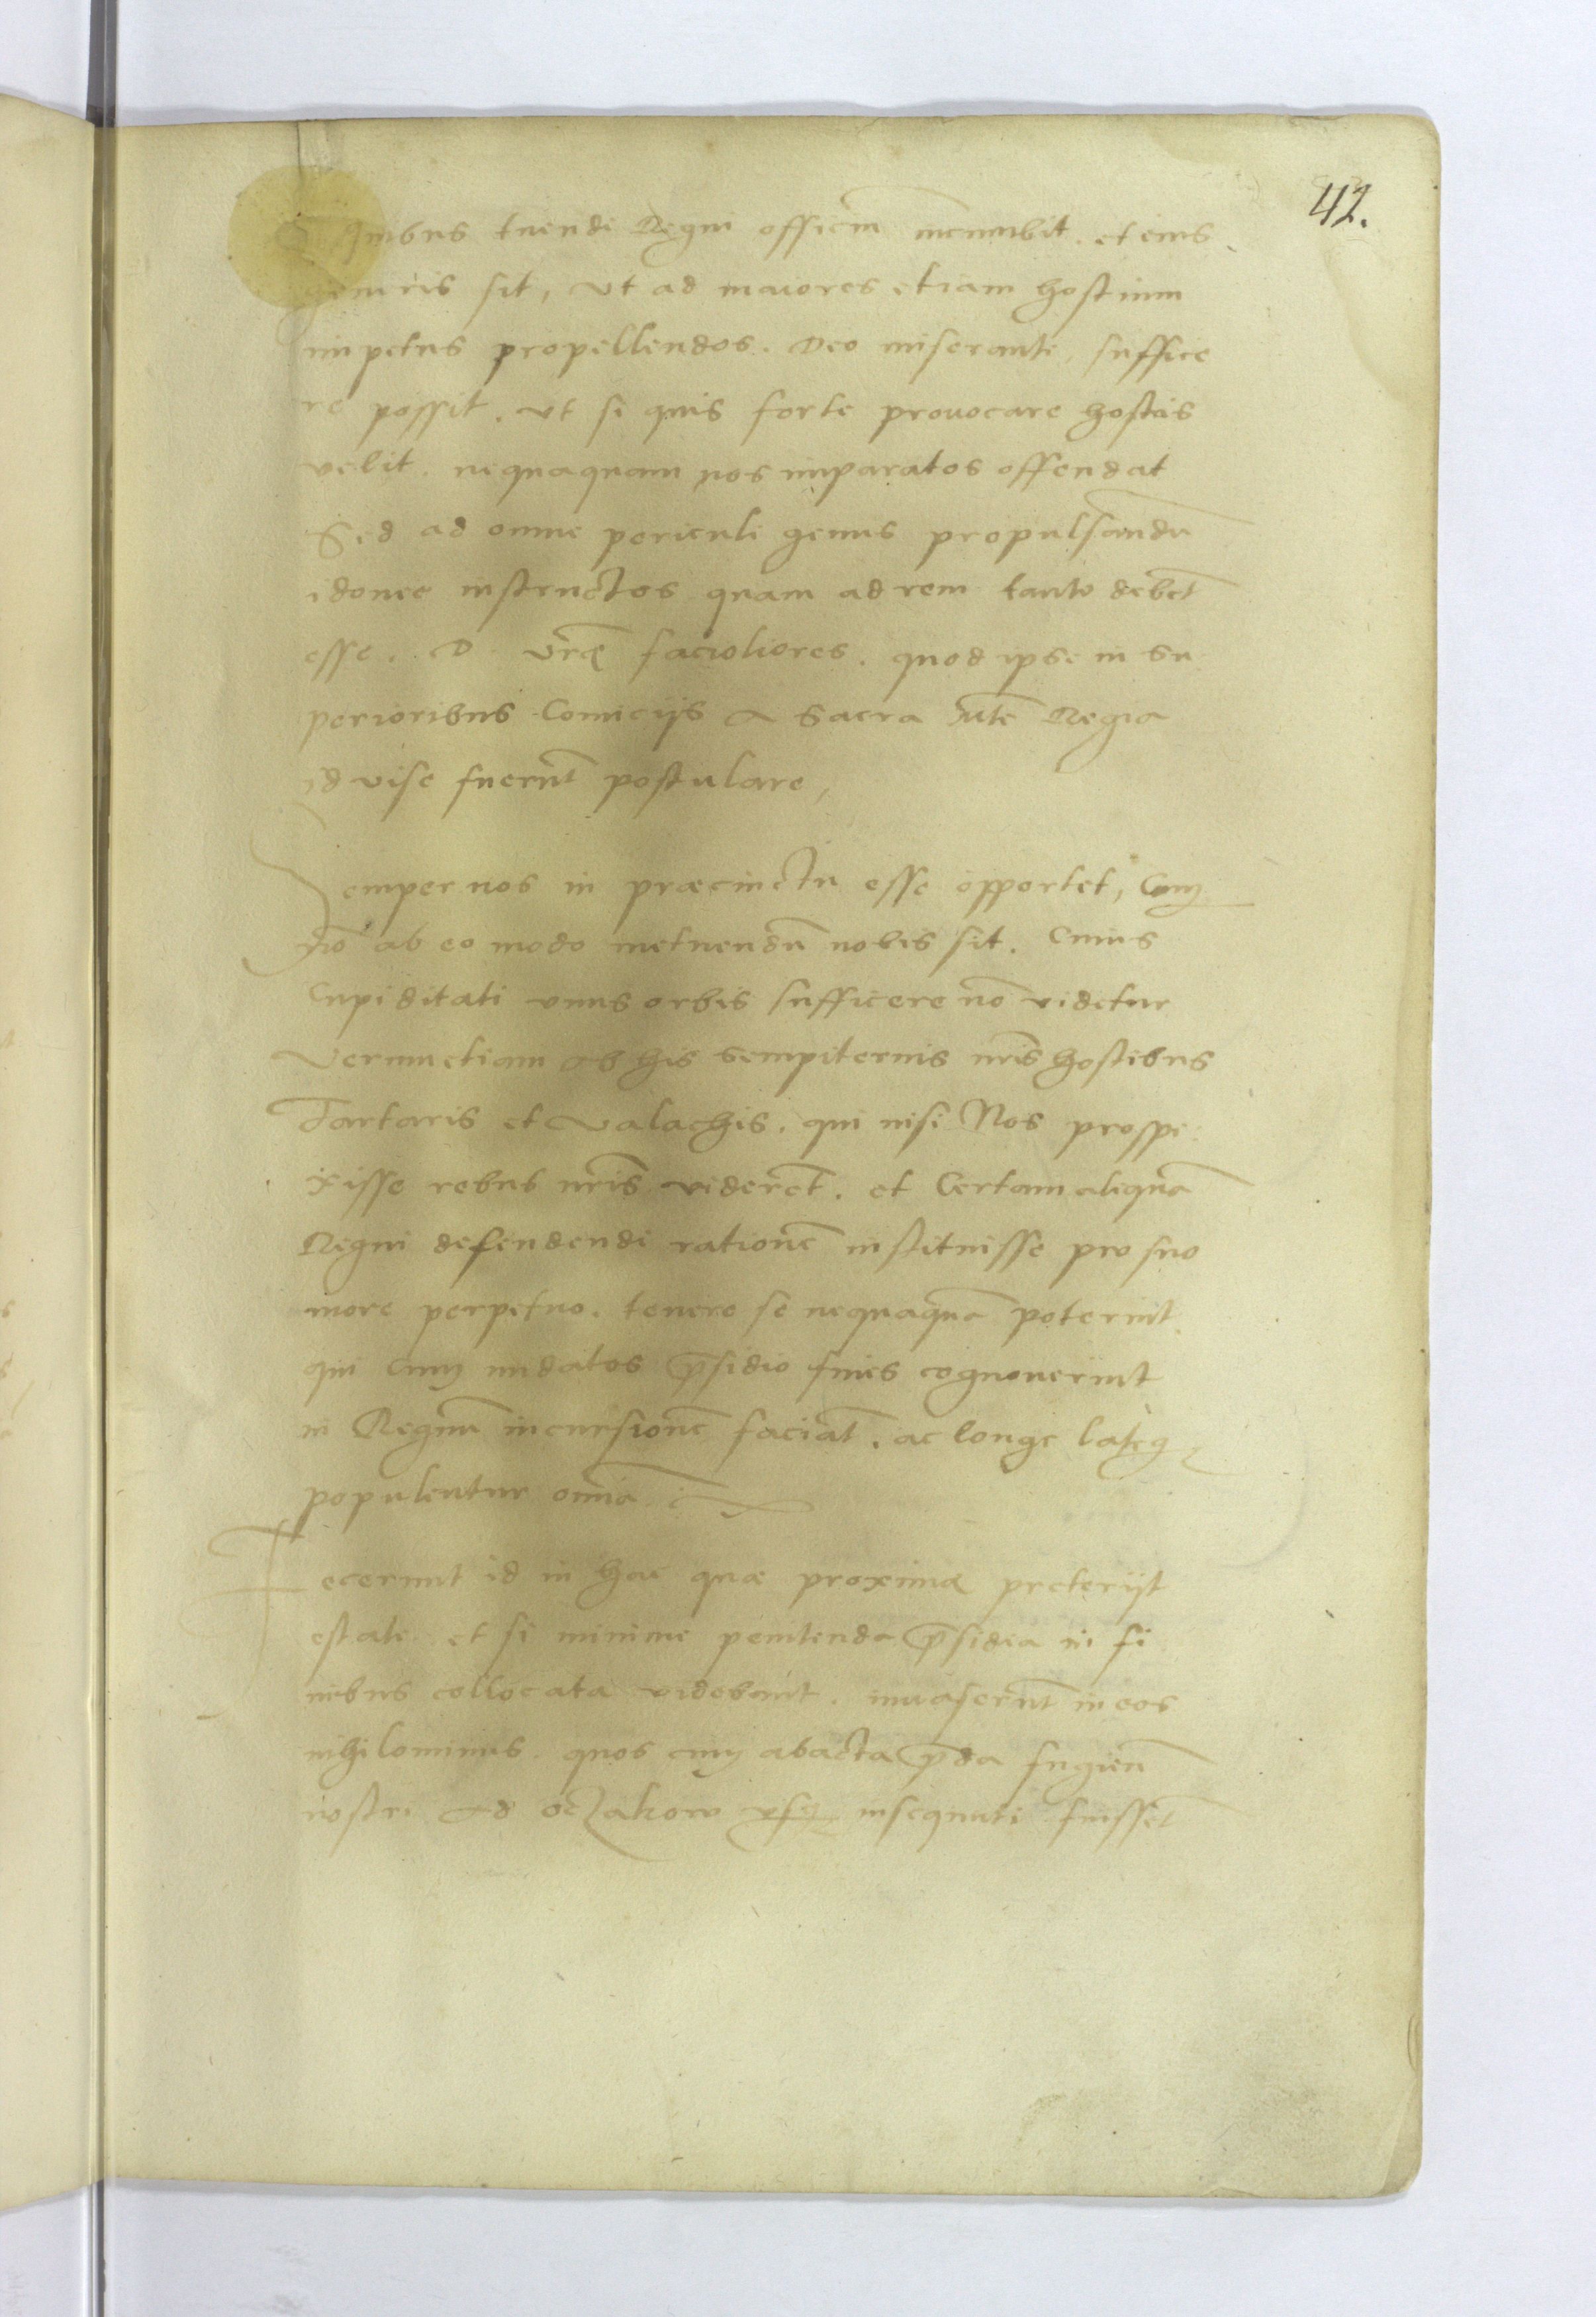 42.
Quibus tuendi Regni officiũ incumbit. et eius
generis sit, ut ad maiores etiam hostium
impetus propellendos. Deo miserante, suffice
re possit. ut si quis forte prouocare hostis
velit. nequaquam nos imparatos offendat
Sed ad omne periculi genus propulsandũ
idonee instructos quam ad rem tanto debẽt
esse. D. vrẽ facioliores. quod ipse in su
perioribus Comicijs a Sacra Mte Regia
id vise fuerũt postulare,
Semper nos in præcinctu esse opportet, Cum
nõ ab eo modo metuendũ nobis sit. Cuius
Cupiditati unus orbis sufficere nõ videtur
Verum etiam ab his sempiternis nr̃is hostibus
Tartaris et Valachis. qui nisi Nos prospe
xisse rebus nr̃is viderẽt. et Certam aliquã
Regni defendendi rationẽ instituisse pro suo
more perpetuo. tenere se nequaquã poterint
qui Cum nudatos p̃sidio fines cognouerint
in Regnũ incursionẽ faciãt. ac longe lateq
populentur omnia
Fecerunt id in hac quæ proximæ preterijt
estate et si minime penitenda p̃sidia in fi
nibus collocata videbãnt. inuaserũt in eos
nihilominus. quos cum abacta p̃da fugien̄
nostri ad oczakow usq insequuti fuissẽt